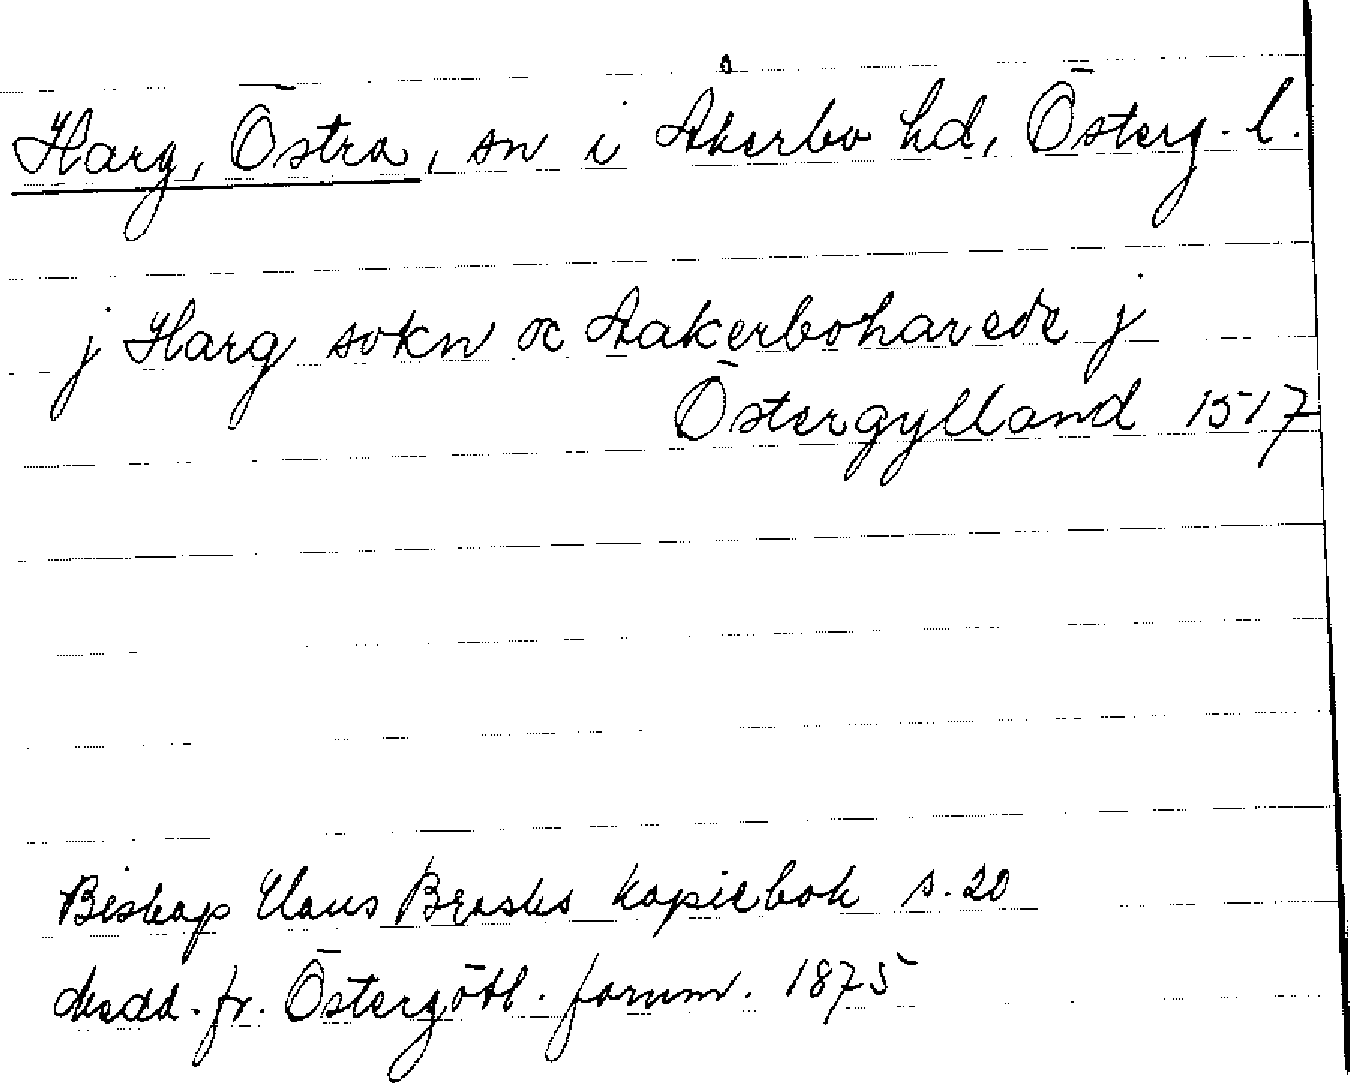 Harg, Östra, sn i Åkerbo hd, Österg. l.
j Harg sokn oc Aakerboharede j
Östergylland 1517
Biskop Hans Brasks kopiebok s. 20
Medd. fr. Östergötl. fornm. 1875